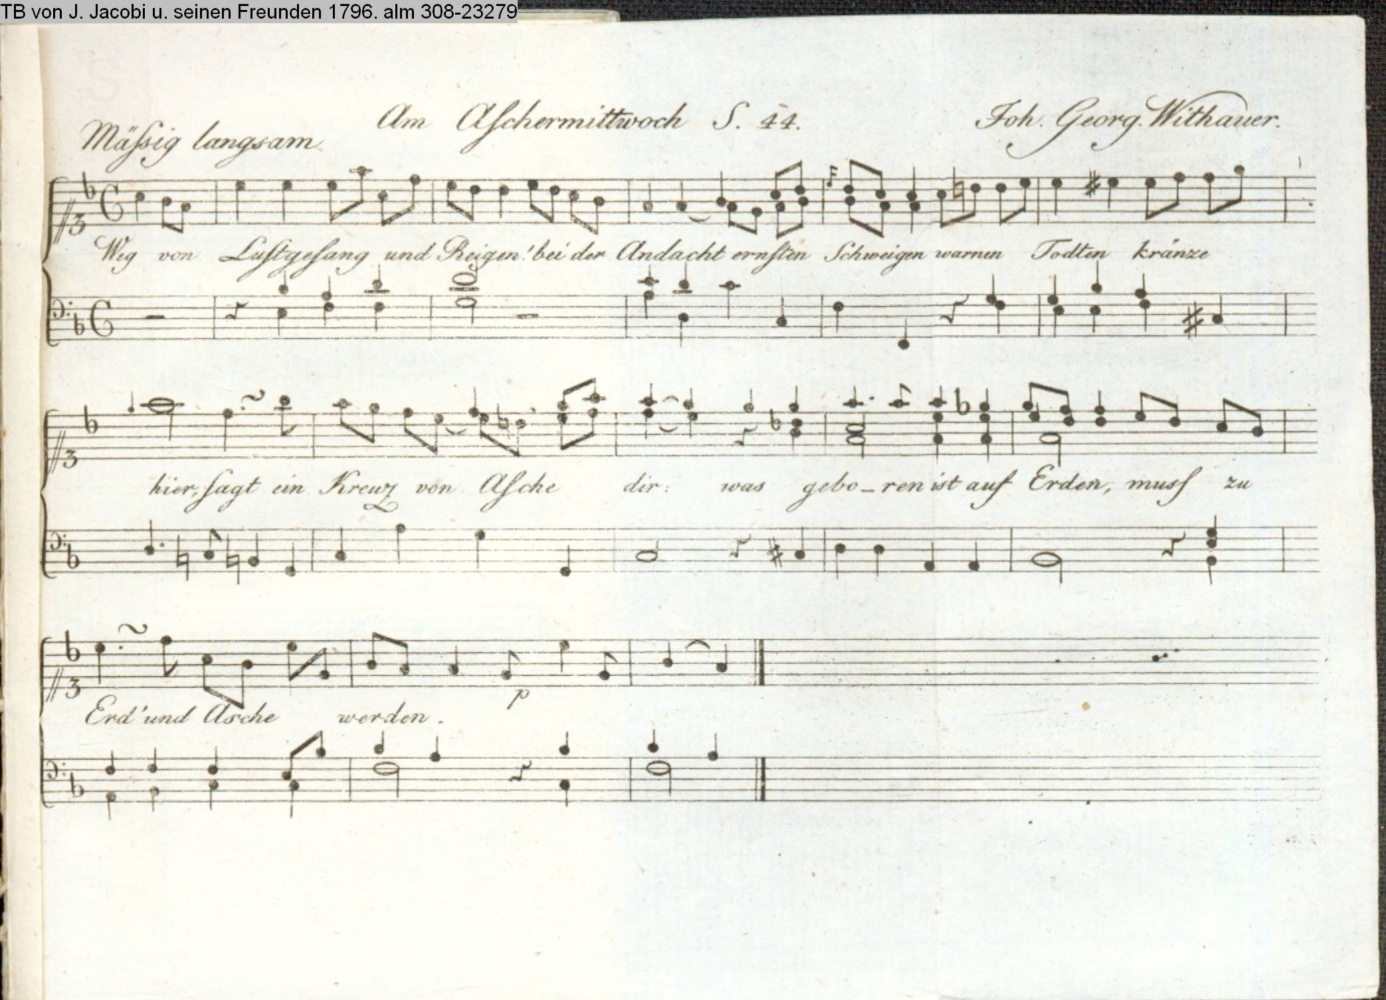 TB von J. Jacobi u. seinen Freunden 1796. alm 308-23279
Am Aſchermittwoch S. 44.
Joh. Georg. Withauer.
Mäſsig langsam.
Weg von Luſtgeſang und Reigen! bei der Andacht ernſten Schweigen warnen Todten kränze
hier, ſagt ein Kreuz von Aſche dir: was gebo-ren ist auf Erden, muſſ zu
p
Erd' und Asche werden.